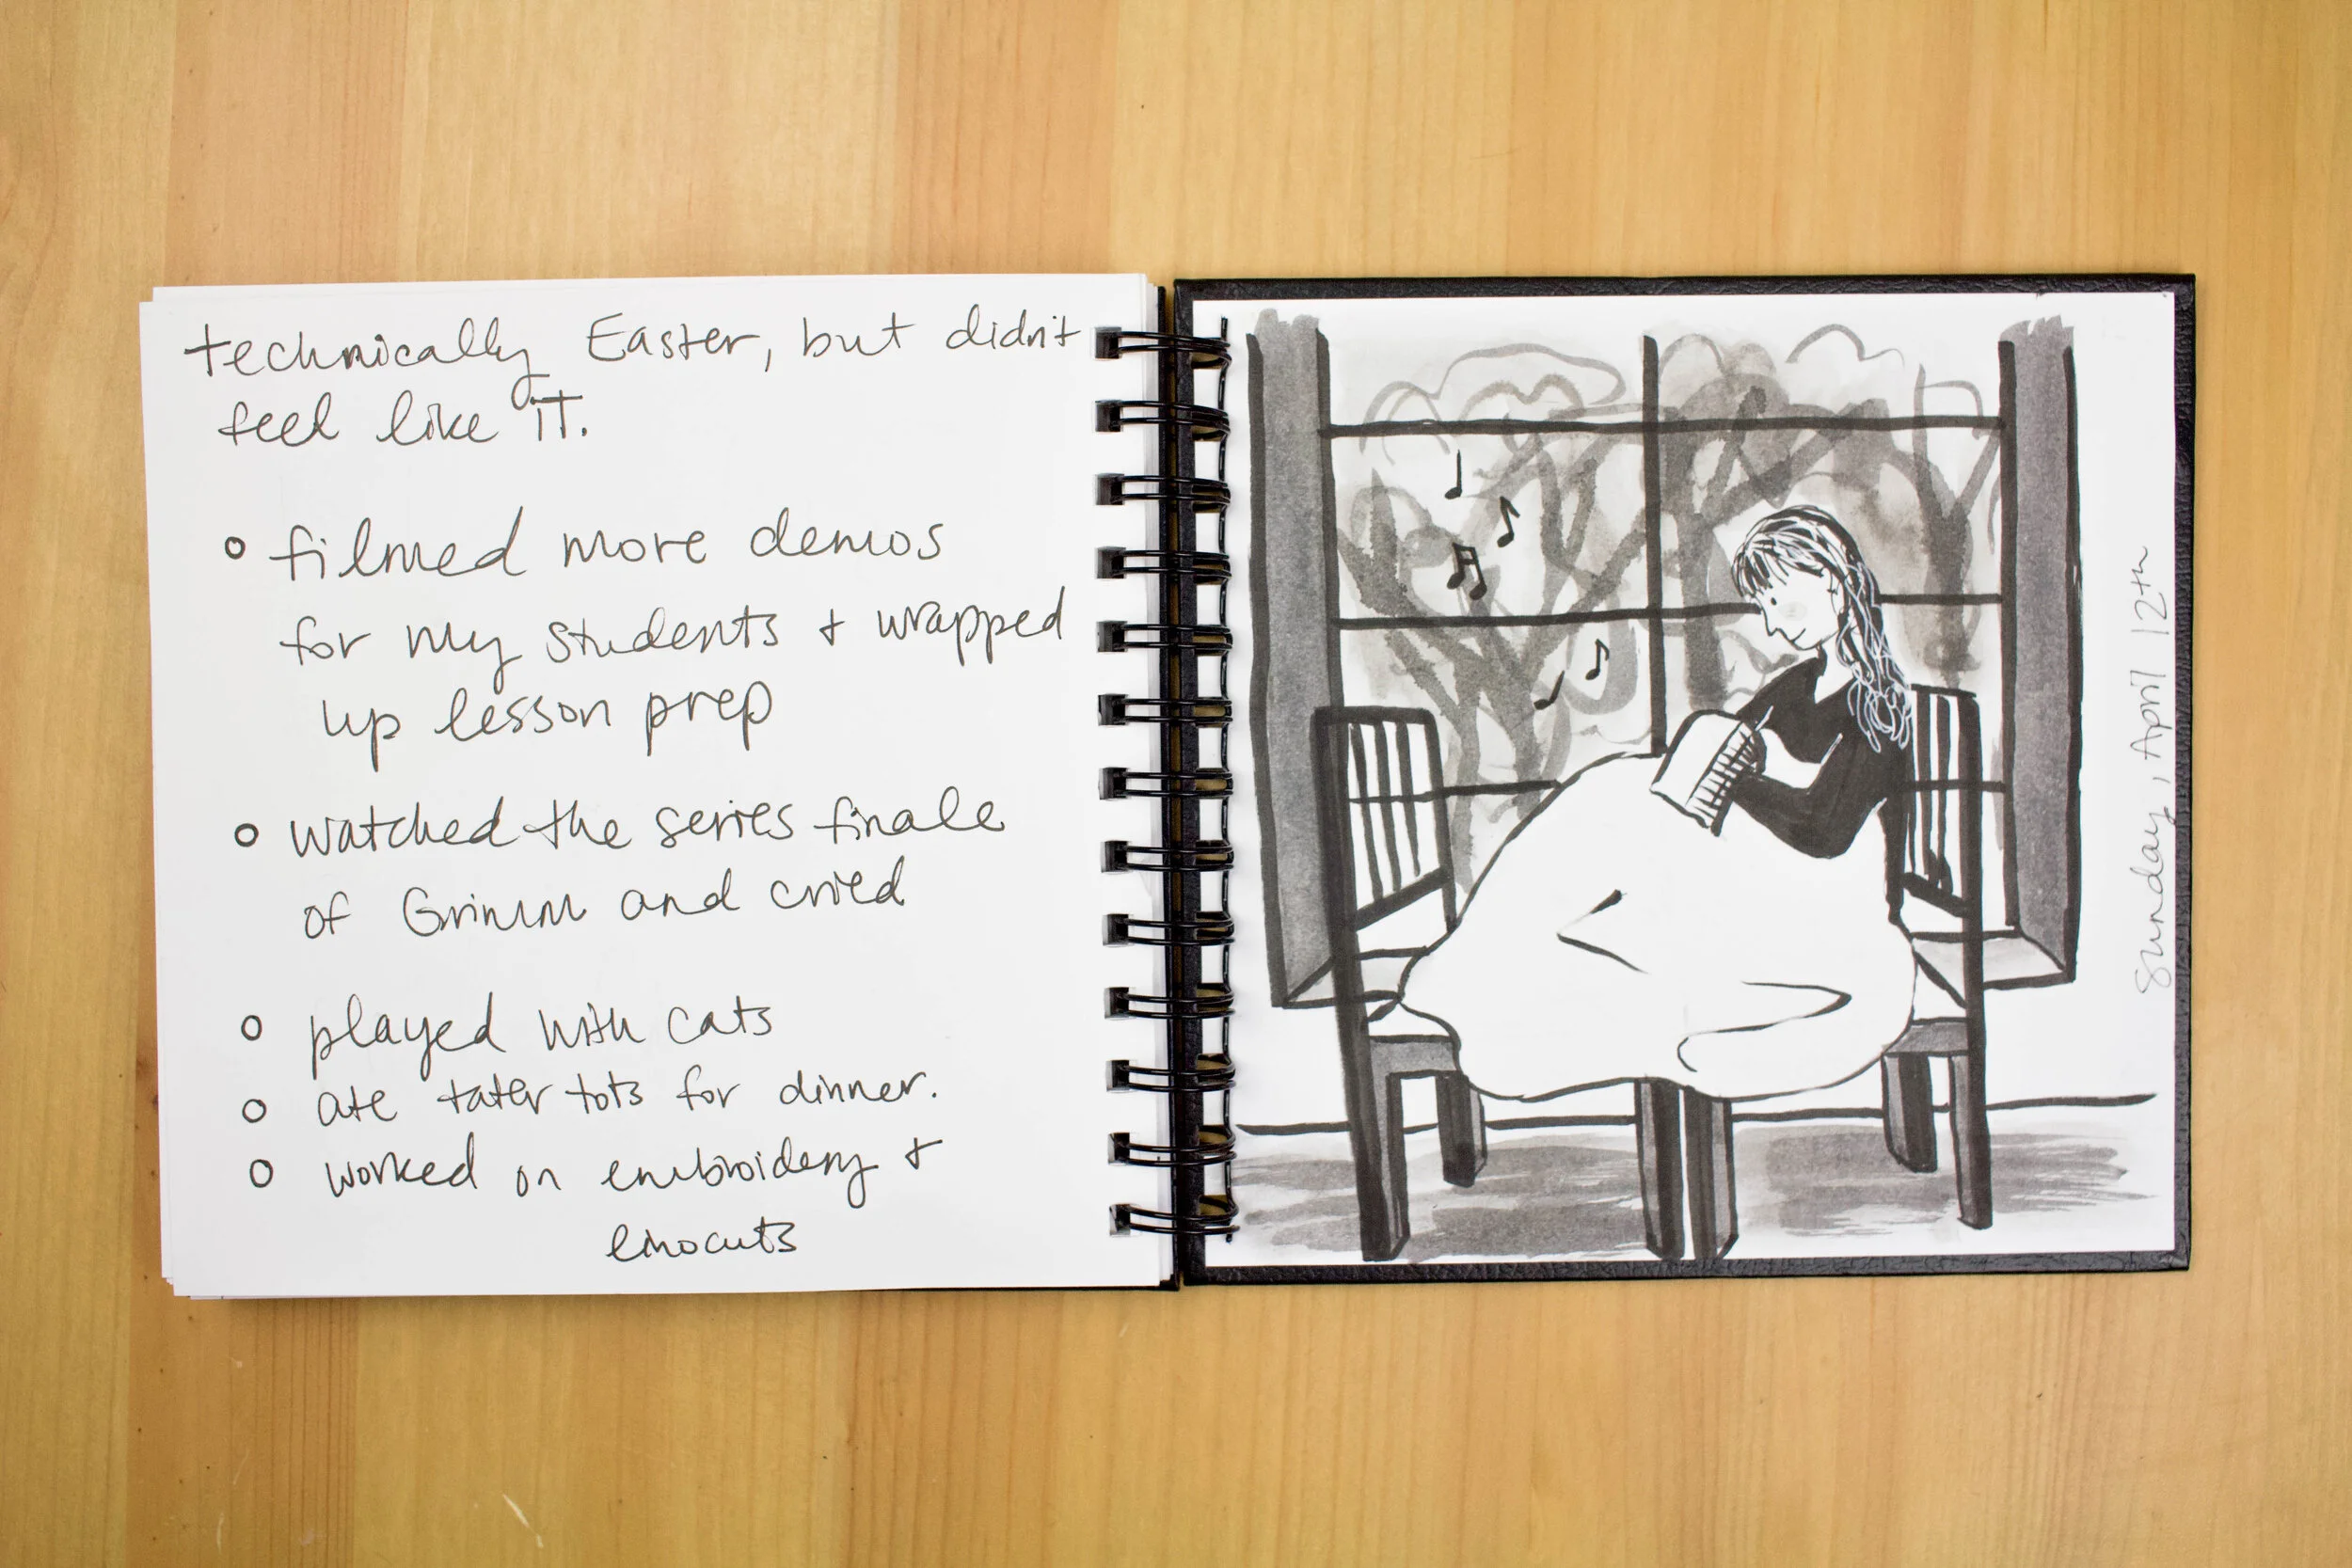 technically Easter, but didn't
feel like iT.
o filmed more demos
for my students + wrapped
up lesson prep
o watched the series finale
of Grimm and cried
o played with cats
o ate tater tots for dinner.
o worked on embroidery +
linocuts
Sunday, April 12th